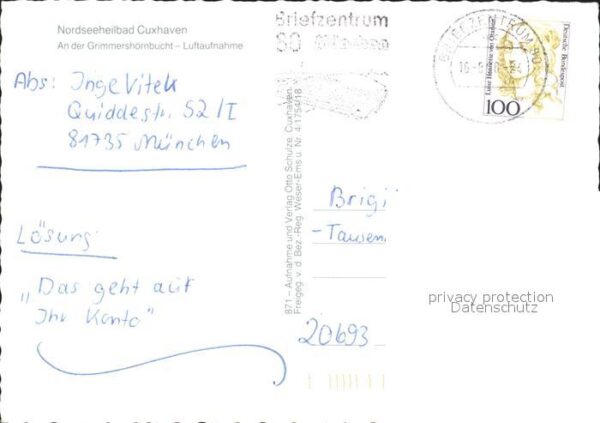 Nordseeheilbad Cuxhaven
An der Grimmershörnbucht – Luftaufnahme
Abs: Inge Vitek
Quiddestr. 52/I
81735 München
Lösung:
„Das geht auf
Ihr Konto"
871 – Aufnahme und Verlag Otto Schulze, Cuxhaven
Freigeg. v. d. Bez.-Reg. Weser-Ems u. Nr. 4:1754/18
Briefzentrum
80
BRIEFZENTRUM 80
Deutsche Bundespost
Luise Henriette von Oranien
100
Brigi
-Tausen
20693
privacy protection
Datenschutz